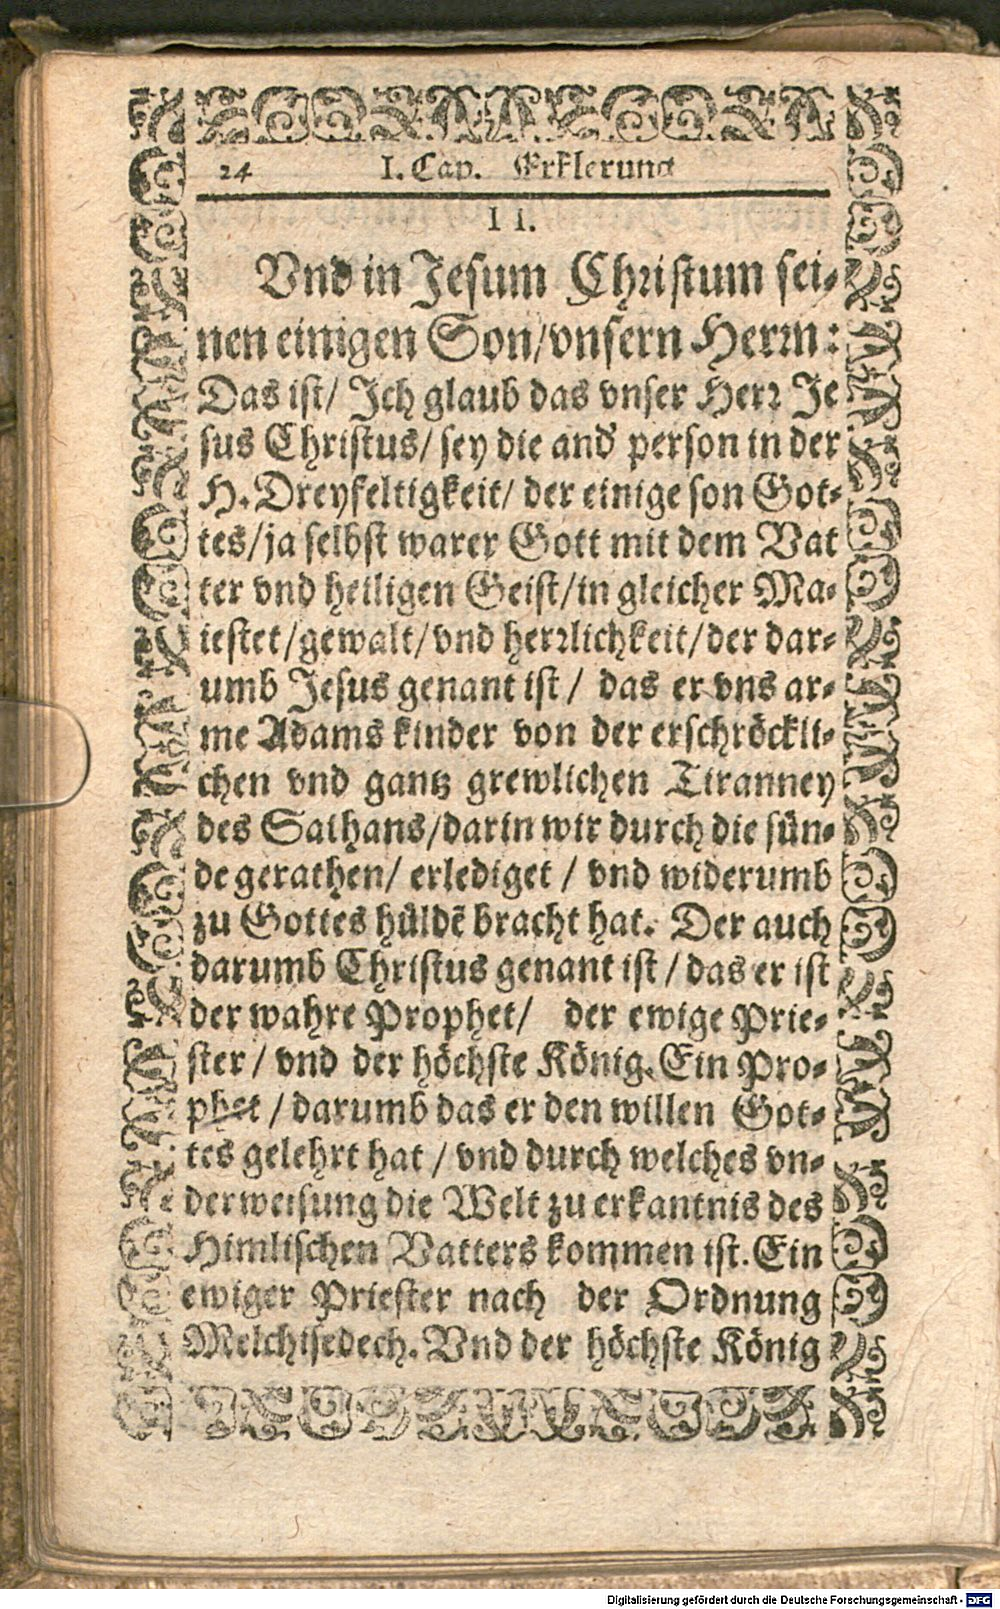 24 I. Cap. Erklerung
II.
Vnd in Jesum Christum sei⸗
nen einigen Son/vnsern Herꝛn:
Das ist/ Jch glaub das vnser Herꝛ Je
sus Christus/ sey die and̕ person in der
H. Dreyfeltigkeit/ der einige son Got⸗
tes/ja selbst warer Gott mit dem Vat
ter vnd heiligen Geist/in gleicher Ma⸗
iestet/gewalt/vnd herꝛlichkeit/der dar⸗
umb Jesus genant ist/ das er vns ar⸗
me Adams kinder von der erschröckli⸗
chen vnd gantz grewlichen Tiranney
des Sathans/darin wir durch die sün⸗
de gerathen/ erlediget / vnd widerumb
zu Gottes hüldẽ bracht hat. Der auch
darumb Christus genant ist / das er ist
der wahre Prophet/ der ewige Prie⸗
ster / vnd der höchste König. Ein Pro⸗
phet / darumb das er den willen Got⸗
tes gelehrt hat / vnd durch welches vn⸗
derweisung die Welt zu erkantnis des
Himlischen Vatters kommen ist. Ein
ewiger Priester nach der Ordnung
Melchisedech. Vnd der höchste König
Digitalisierung gefördert durch die Deutsche Forschungsgemeinschaft - DFG